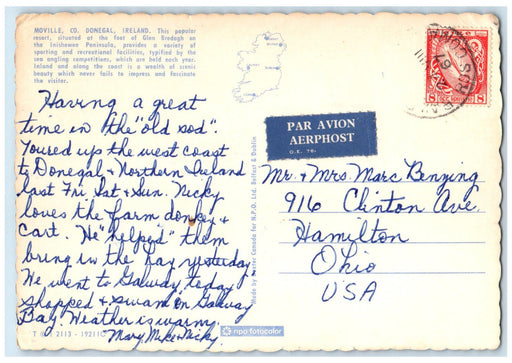 MOVILLE, CO. DONEGAL, IRELAND. This popular
resort, situated at the foot of Glen Bredagh on
the Inishowen Peninsula, provides a variety of
sporting and recreational facilities, typified by the
sea angling competitions, which are held each year.
Inland and along the coast is a wealth of scenic
beauty which never fails to impress and fascinate
the visitor.
Having a great
time in the "old sod".
Toured up the west coast
to Donegal + Northern Ireland
last Fri Sat + Sun. Nicky
loves the farm donkey +
cart. He "helped" them
bring in the hay yesterday
We went to Galway today
shopped + swam in Galway
Bay. Weather is warm.
Mary Mike + Nicky
T 2113 - 19211
Made by Dexter Canada for N.P.O. Ltd. Belfast & Dublin
npo fotocolor
PAR AVION
AERPHOST
O.E. 70.
8 8
Mr. + Mrs Marc Benzing
916 Clinton Ave.
Hamilton
Ohio
USA